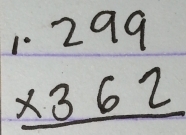 1. 299
×362